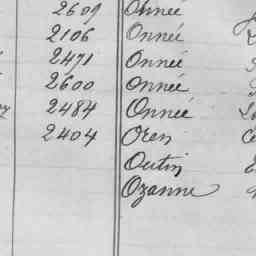 2609 Onnée
2106 Onnée
2471 Onnée
2600 Onnée
2484 Onnée
2404 Oren
Outin
Ozanne